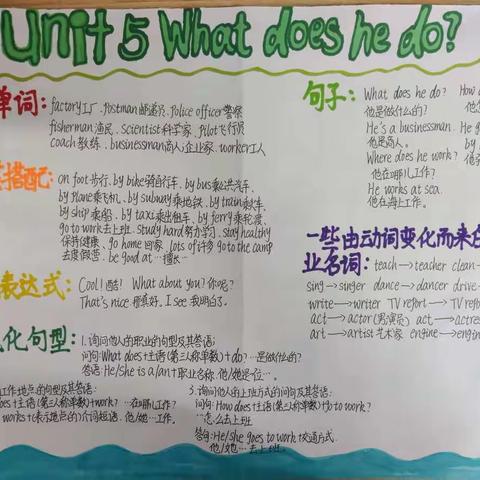 Unit 5 What does he do?
单词: factory工厂、postman邮递员、police officer警察
fisherman渔民、scientist科学家、pilot飞行员
coach教练、businessman商人企业家、worker工人
搭配: on foot步行、by bike骑自行车、by bus乘公共汽车、
by plane乘飞机、by subway乘地铁、by train乘火车、
by ship乘船、by taxi乘出租车、by ferry乘轮渡、
go to work去上班、study hard努力学习、stay healthy
保持健康、go home回家、lots of许多 go to the camp
去度假营、be good at…擅长…
表达式: Cool!酷! What about you?你呢?
That's nice 很好. I see 我明白了.
化句型: 1.询问他人的职业的句型及其答语:
问句:What does+主语(第三人称单数)+do?…是做什么的?
答语:He/She is a/an+职业名称.他/她是一位….
工作地点的句型及其答语:
does+主语(第三人称单数)+work?…在哪儿工作?
works+(表示地点的)介词短语.他/她…工作.
3.询问他人的上班方式的问句及其答语:
问句:How does+主语(第三人称单数)+go to work?
…怎么去上班
答句:He/She goes to work+交通方式.
他/她…去上班.
句子: What does he do?
他是做什么的?
He's a businessman.
他是商人.
Where does he work?
他在哪儿工作?
He works at sea.
他在海上工作.
一些由动词变化而来
业名词: teach→teacher clean→
sing→singer dance→dancer drive→
write→writer TV report→TV report
act→actor(男演员) act→actres
art→artist艺术家 engine→engin